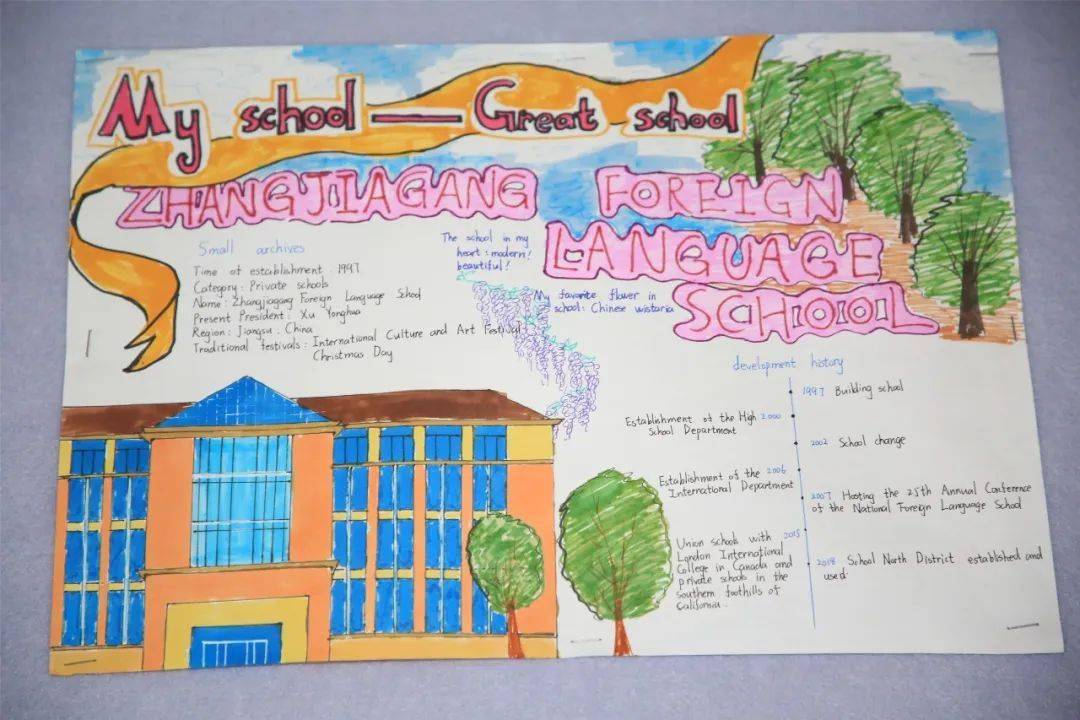 My school — Great school
ZHANGJIAGANG FOREIGN
LANGUAGE
SCHOOOL
Small archives
Time of establishment 1997
Category: Private schools
Name: Zhangjiagang Foreign Language School
Present President: Xu Yonghua
Region: Jiangsu. China
Traditional festivals: International Culture and Art Festival.
Christmas Day
The school in my
heart: modern!
beautiful!
My favorite flower in
school: Chinese wistaria
development history
1997 Building school
Establishment of the High 2000
School Department
2002 School change
Establishment of the 2006
International Department
2007 Hosting the 25th Annual Conference
of the National Foreign Language School
Union schools with 2015
London International
College in Canada and
private schools in the
Southern foothills of
California.
2018 School North District established and
used